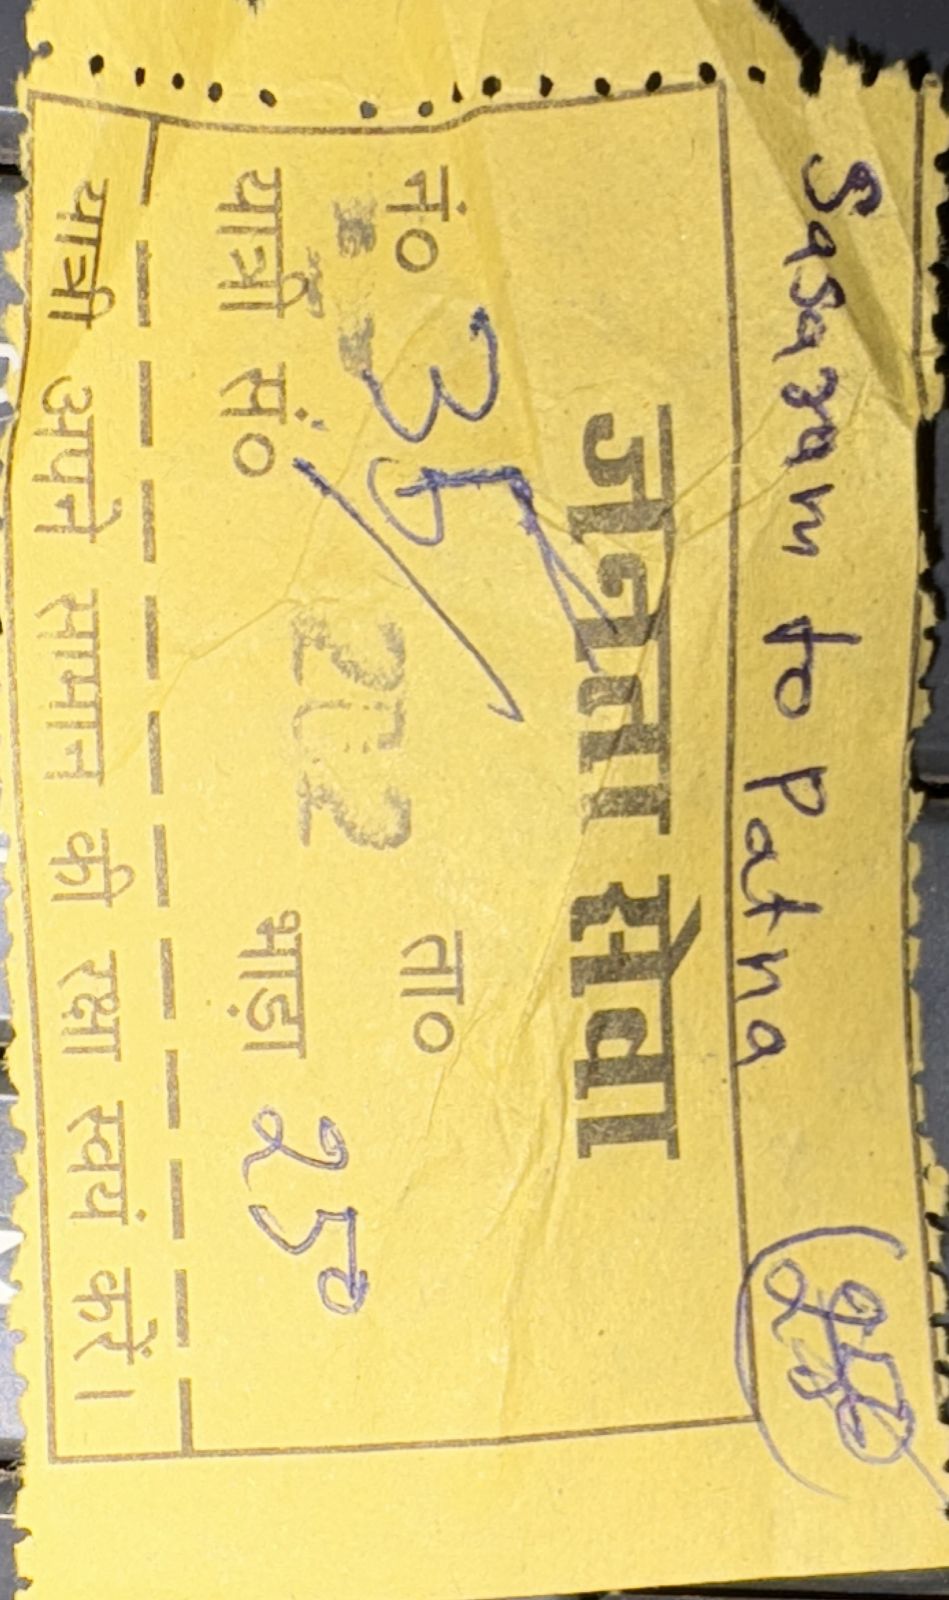 Sasaram to Patna (250
जनता सेवा
नं० 35 ता०
202
यात्री सं० भाड़ा 250
यात्री अपने सामान की रक्षा स्वयं करें।